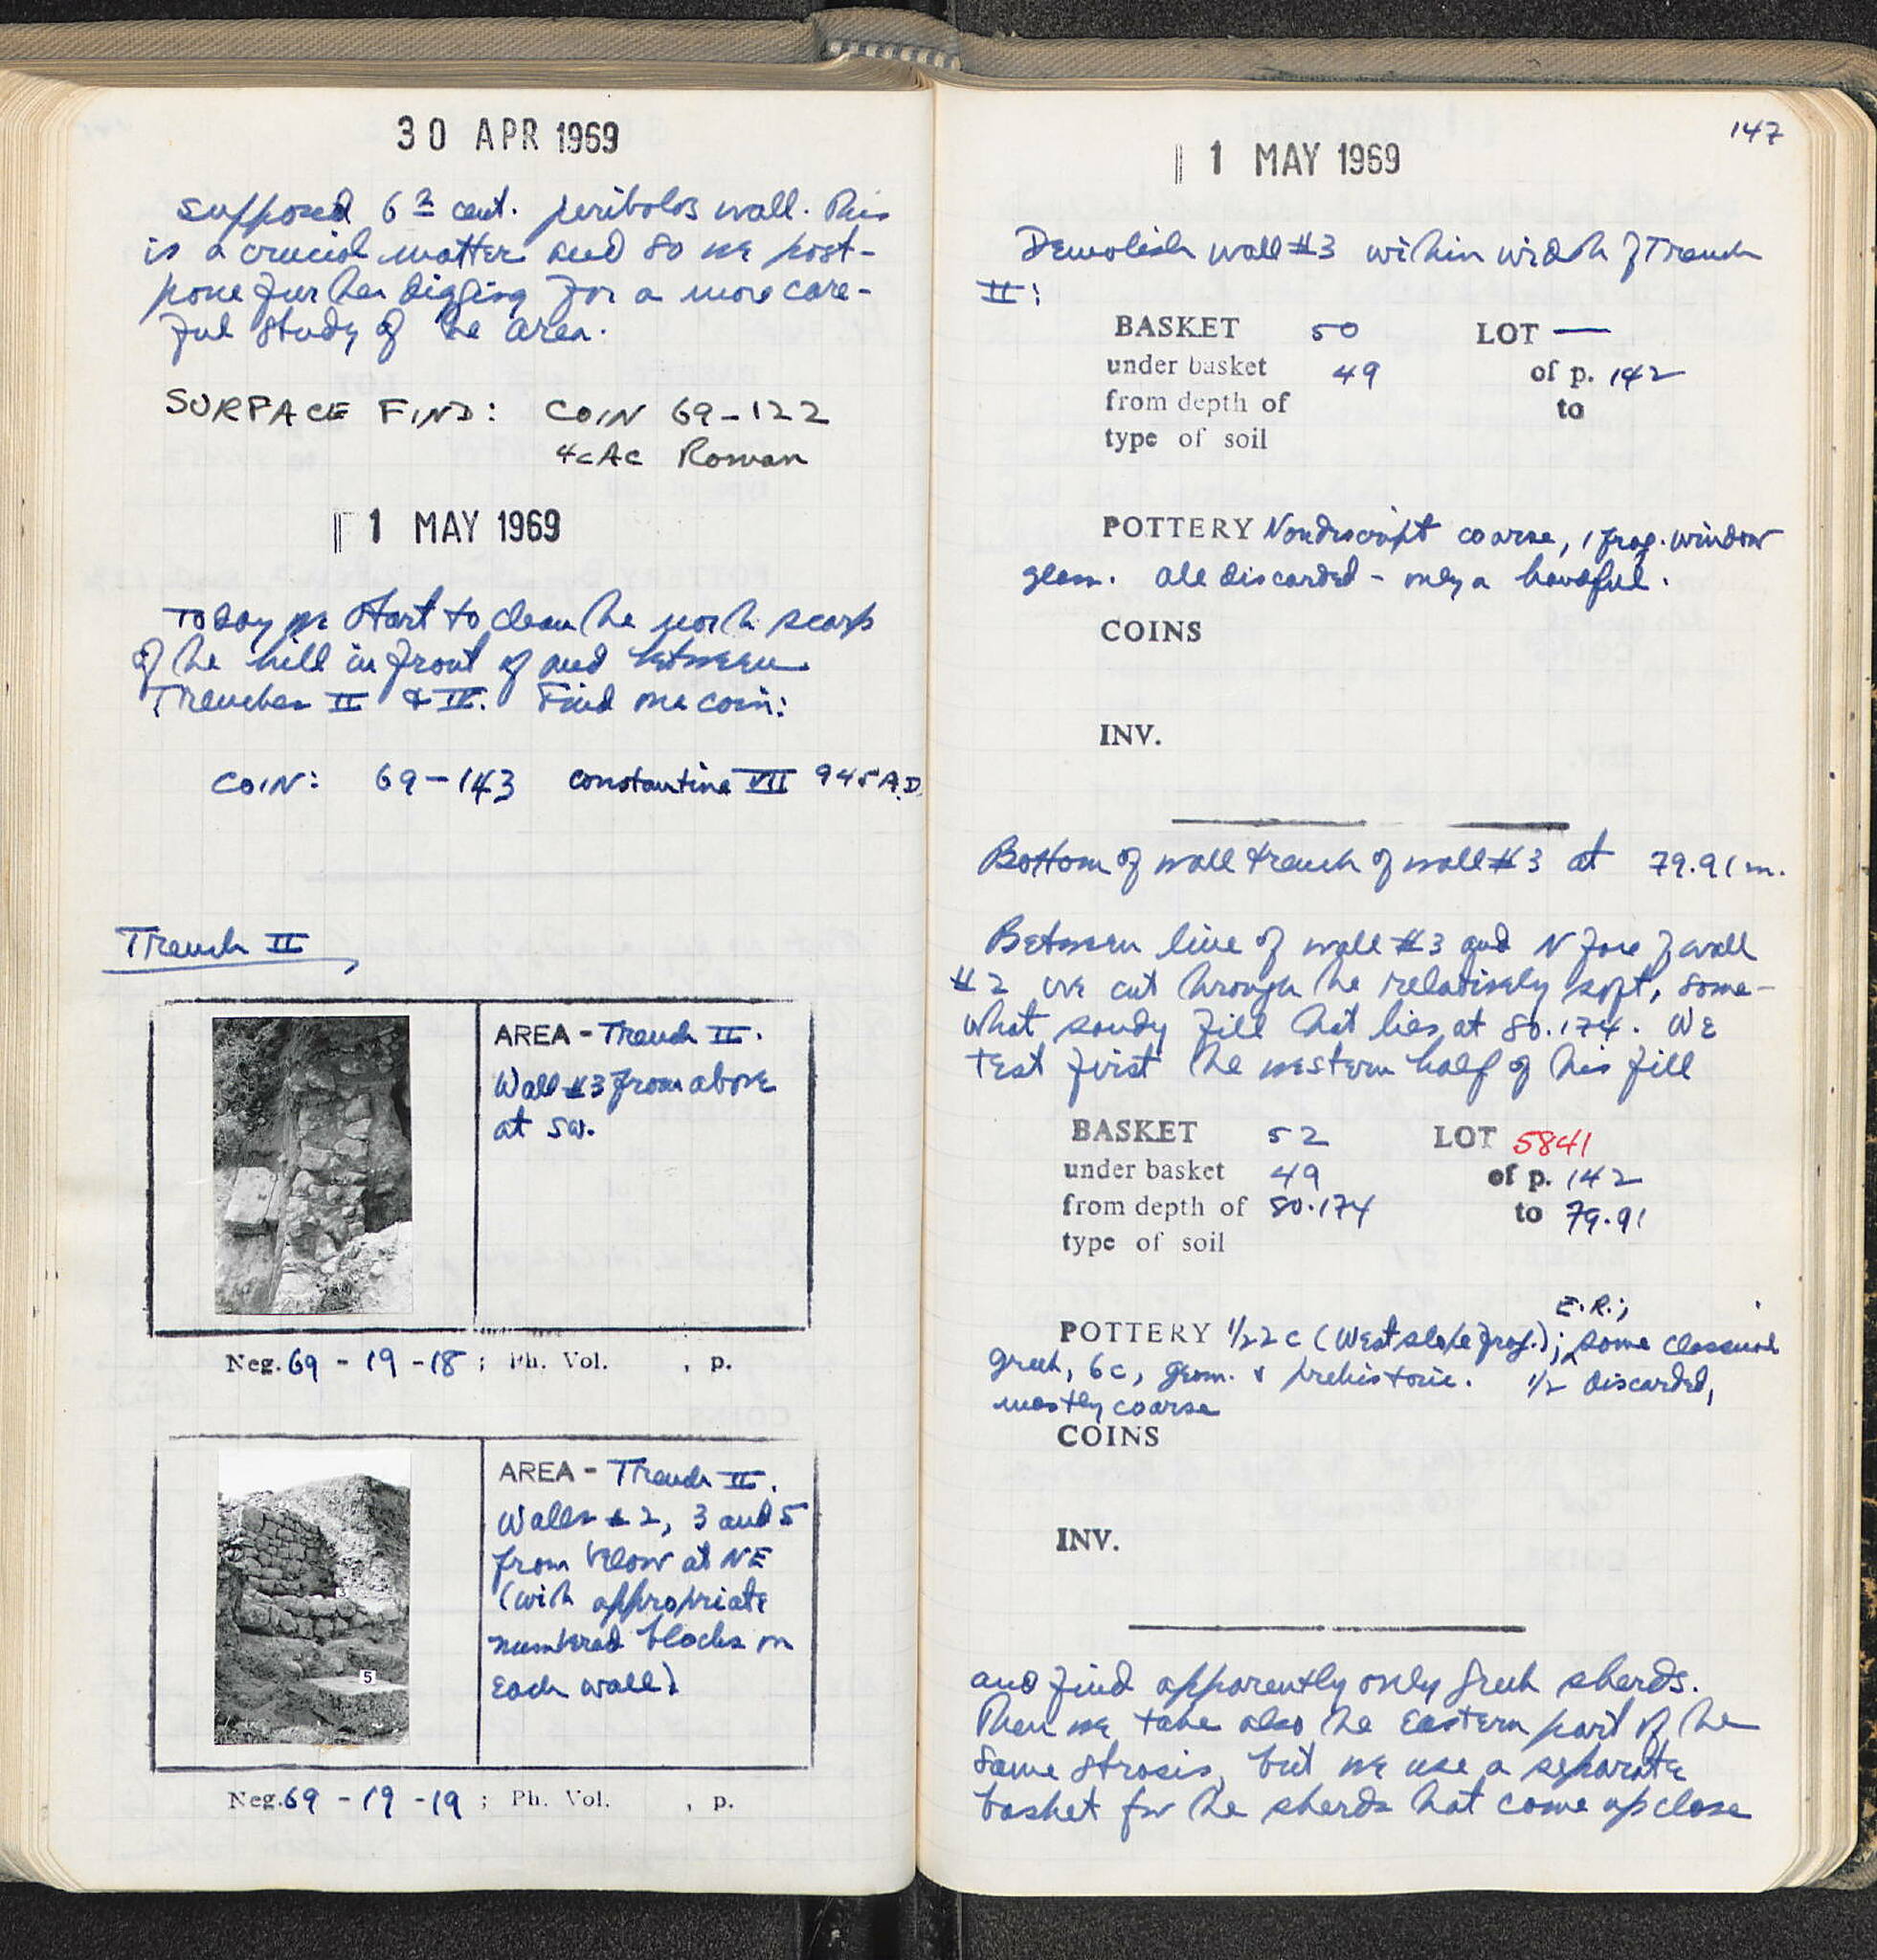 30 APR 1969
supposed 6th cent. peribolos wall. This
is a crucial matter and so we post-
pone further digging for a more care-
ful study of the area.
SURFACE FIND: COIN 69-122
4cAC Roman
1 MAY 1969
Today we start to clean the north scarp
of the hill in front of and between
Trenches II & IV. Find one coin:
COIN: 69-143 Constantine VII 945 A.D.
Trench II
AREA - Trench II.
Wall #3 from above
at SW.
Neg. 69 - 19 - 18 ; Ph. Vol. , p.
AREA - Trench II.
Walls # 2, 3 and 5
from below at NE
(with appropriate
numbered blocks on
each wall)
3
5
Neg. 69 - 19 - 19 ; Ph. Vol. , p.
147
1 MAY 1969
Demolish wall #3 within width of Trench
II:
BASKET 50 LOT —
under basket 49 of p. 142
from depth of to
type of soil
POTTERY Nondescript coarse, 1 frag. window
glass. All discarded - only a handful.
COINS
INV.
Bottom of wall trench of wall #3 at 79.91 m.
Between line of wall #3 and N face of wall
#2 we cut through the relatively soft, some-
what sandy fill that lies at 80.174. We
test first the western half of this fill
BASKET 52 LOT 5841
under basket 49 of p. 142
from depth of 80.174 to 79.91
type of soil
E.R.;
POTTERY 1/2 2c (West slope frag.); some classical
Greek, 6c, geom. & prehistoric. 1/2 discarded,
mostly coarse
COINS
INV.
and find apparently only Greek sherds.
Then we take also the Eastern part of the
same strosis, but we use a separate
basket for the sherds that come up close